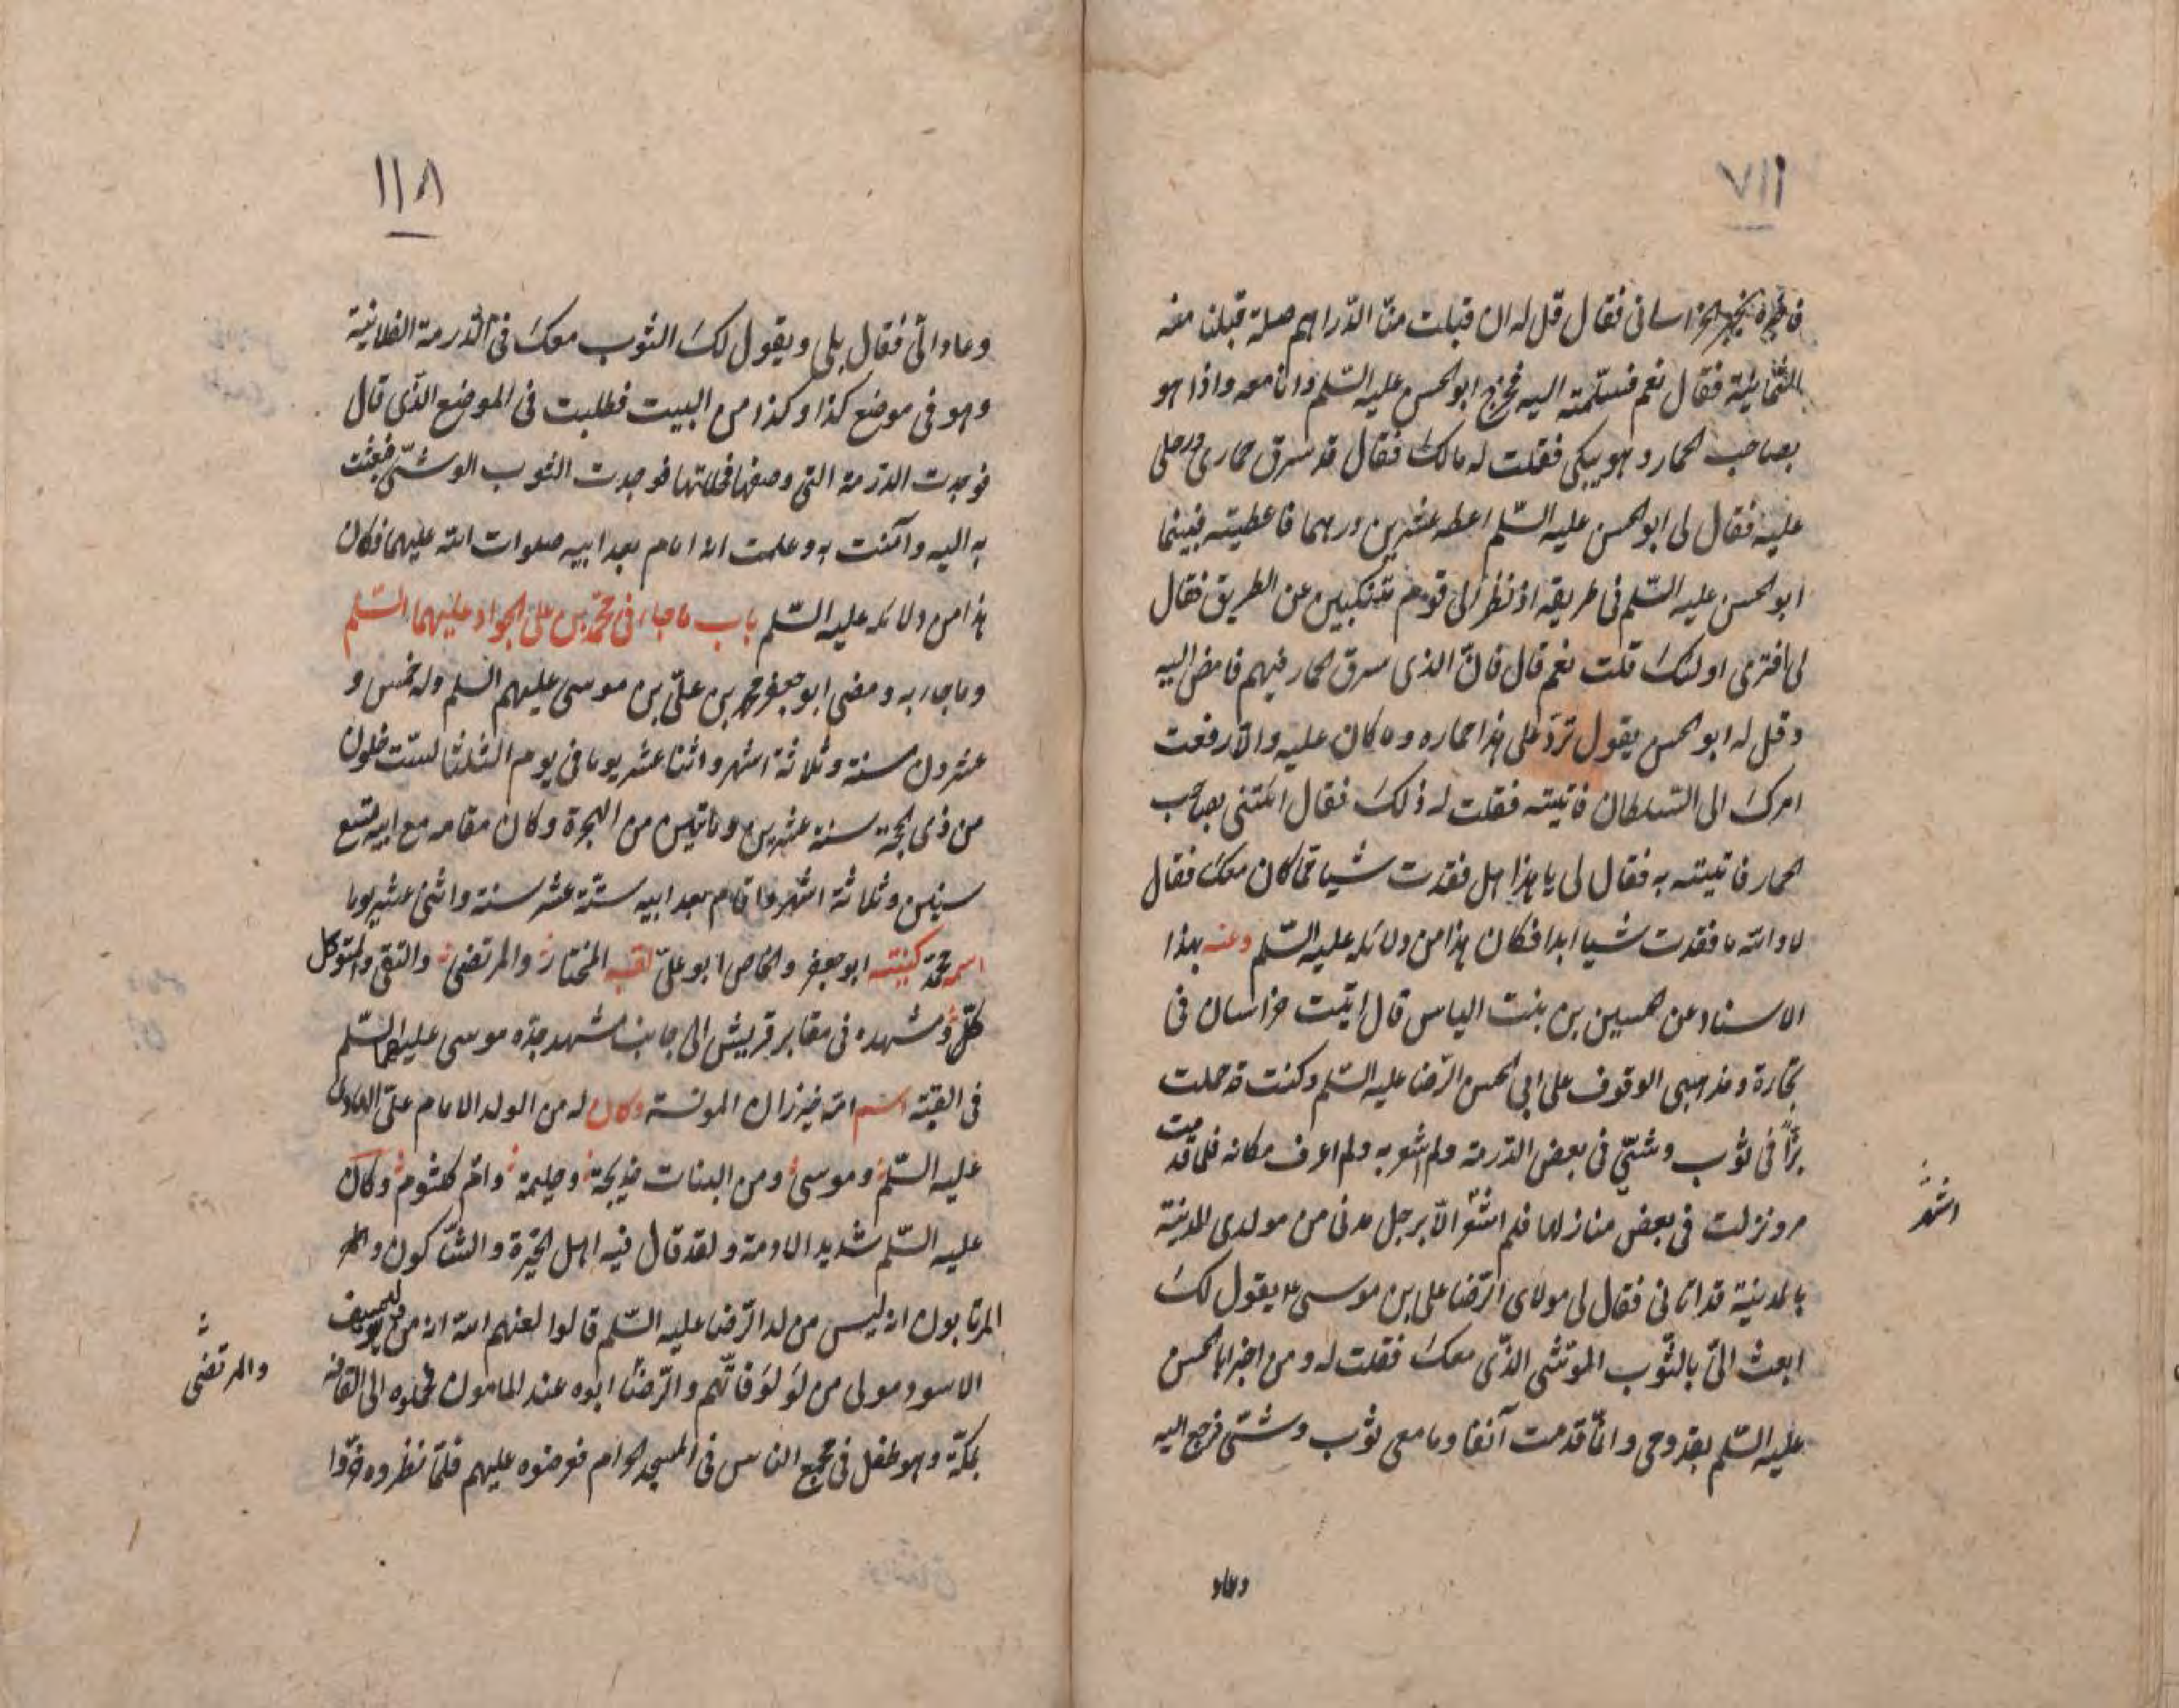 ٧١١
فاخبره بخبر الخراسانى فقال قل له ان قبلت منّا الدّراهم صلة قبلنا منه
فقال نعم فسلّمته اليه فخرج ابو الحسن عليه السّلم وانا معه واذا هو
بصاحب الحمار وهو يبكى فقلت له مالك فقال قد سرق حمارى ورحلى
عليه فقال لى ابو الحسن عليه السّلم اعطه عشرين درهما فاعطيته فبينما
ابو الحسن عليه السّلم فى طريقه اذ نظر الى قوم متنكبين عن الطريق فقال
لى افترى اولئك قلت نعم قال فانّ الذى سرق الحمار فيهم فامض اليه
وقل له ابو الحسن يقول تردّ على هذا حماره وما كان عليه والّا رفعت
امرك الى السّلطان فاتيته فقلت له ذلك فقال ائتنى بصاحب
الحمار فاتيته به فقال لى يا هذا هل فقدت شيا ممّا كان معك فقال
لا والله ما فقدت شيا ابدا فكان هذا من دلائله عليه السّلم وعنه بهذا
الاسناد عن الحسين بن بنت الياس قال اتيت خراسان فى
تجارة ومذهبى الوقوف على ابى الحسن الرّضا عليه السّلم وكنت قد حملت
بزّا فى ثوب وشىّ فى بعض الدّرمة ولم اشعر به ولم اعرف مكانه فلما قدمت
مرو نزلت فى بعض منازلها فلم اشعر الّا برجل مدنى من مولدى المدينة
بالمدينة قد اتانى فقال لى مولاى الرّضا على بن موسى ع يقول لك
ابعث الىّ بالثّوب الموشّى الذّى معك فقلت له ومن اخبر ابا الحسن
عليه السّلم بقدومى وانّما قدمت آنفا وما معى ثوب وشىّ فرجع اليه
اشعر
وعاد
١١٨
وعاد الىّ فقال بلى ويقول لك الثوب معك فى الدّرمة الفلانيّة
وهو فى موضع كذا وكذا من البيت فطلبت فى الموضع الذّى قال
فوجدت الدّرمة التى وصفها فحللتها فوجدت الثوب الوشىّ فبعثت
به اليه وآمنت به وعلمت انه امام بعد ابيه صلوات الله عليهما فكان
هذا من دلائله عليه السّلم باب ما جاء فى محمّد بن على الجواد عليهما السّلم
وما جاء به ومضى ابو جعفر محمد بن علىّ بن موسى عليهم السلم وله خمس و
عشرون سنة وثلاثة اشهر واثنا عشر يوما فى يوم الثلثا لستّ خلون
من ذى الحجّة سنة عشرين وماتين من الهجرة وكان مقامه مع ابيه تسع
سنين وثلاثة اشهر واقام بعد ابيه ستّة عشر سنة واثنى عشر يوما
اسمه محمّد كنيته ابو جعفر والخاص ابو علىّ لقبه المختار والمرتضى والتقى والمتوكل
ومشهده فى مقابر قريش الى جانب مشهد جدّه موسى عليهما السّلم
فى القبّة اسم امّه خيزران المونسة وكان له من الولد الامام علىّ العادل
عليه السّلم وموسى ومن البنات خديجة وحليمة وامّ كلثوم وكان
عليه السّلم شديد الادمة ولقد قال فيه اهل الحيرة والشّاكون وهم
المرتابون انه ليس من ولد الرّضا عليه السّلم قالوا لعنهم الله انه من
الاسود مولى من لؤلؤ فانّهم والرّضا ابوه عند المامون حملوه الى القافة
بمكّة وهو طفل فى مجمع الناس فى المسجد الحرام فعرضوه عليهم فلمّا نظروه خرّوا
والمرتضى